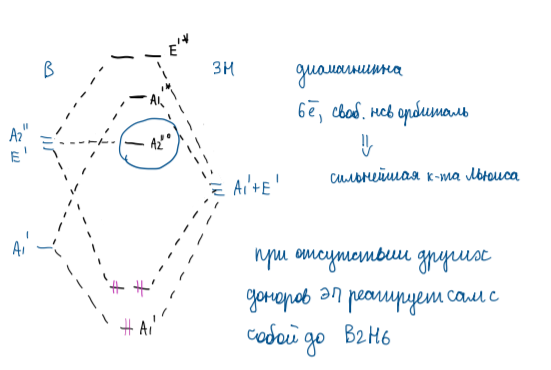 E'*
B
3H
A1'*
A2''
E'
A2''°
A1'+E'
A1'
A1'
диамагнитна
6ē, своб. нсв орбиталь
⇓
сильнейшая к-та Льюиса
при отсутствии других
доноров ЭП реагирует сам с
собой до B2H6